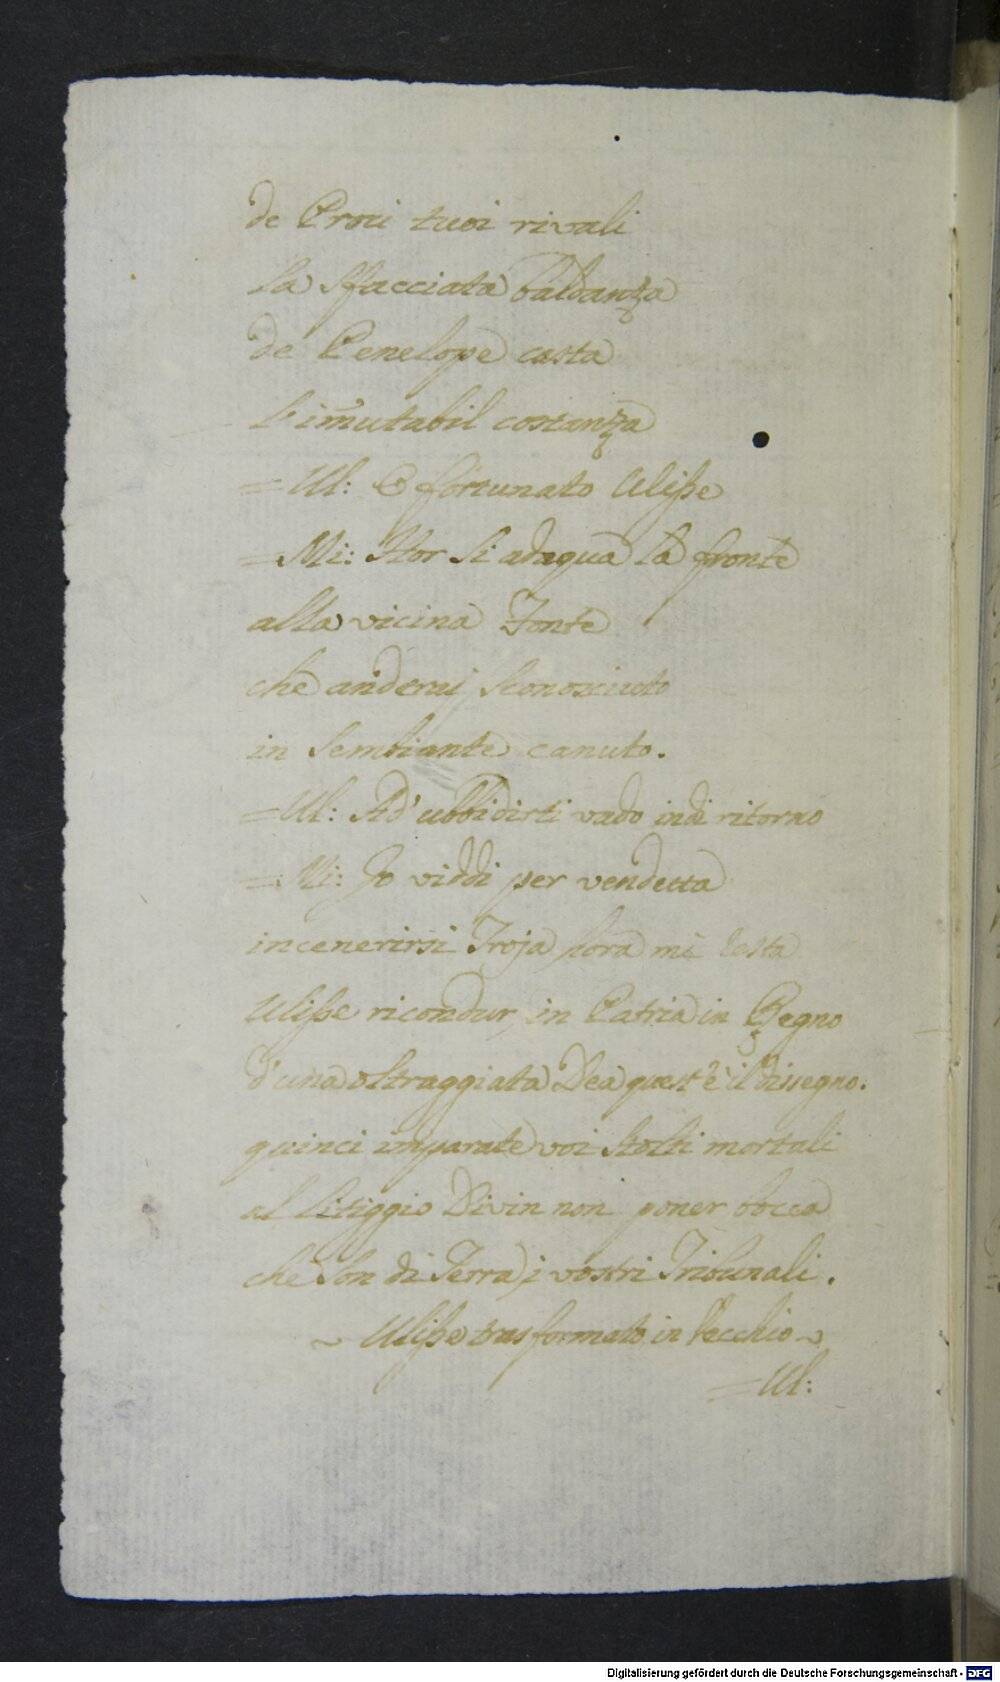 de Proci tuoi rivali
la sfacciata baldanza
de Penelope casta
l'im̃utabil costanza
= Ul: O fortunato Ulisse
= Mi: Hor si adaqua la fronte
alla vicina Fonte
che anderai sconosciuto
in sembiante canuto.
= Ul: Ad' ubbidirti vado indi ritorno
= Mi: Jo viddi per vendetta
incenerirsi Troja hora mi resta
Ulisse ricondur, in Patria in Regno
d'una oltraggiata Dea quest'è il dissegno.
quinci imparate voi stolti mortali
al litiggio Divin non poner bocca
che son di Terra, i vostri Tribunali.
~ Ulisse trasformato in Vecchio ~
= Ul:
Digitalisierung gefördert durch die Deutsche Forschungsgemeinschaft - DFG